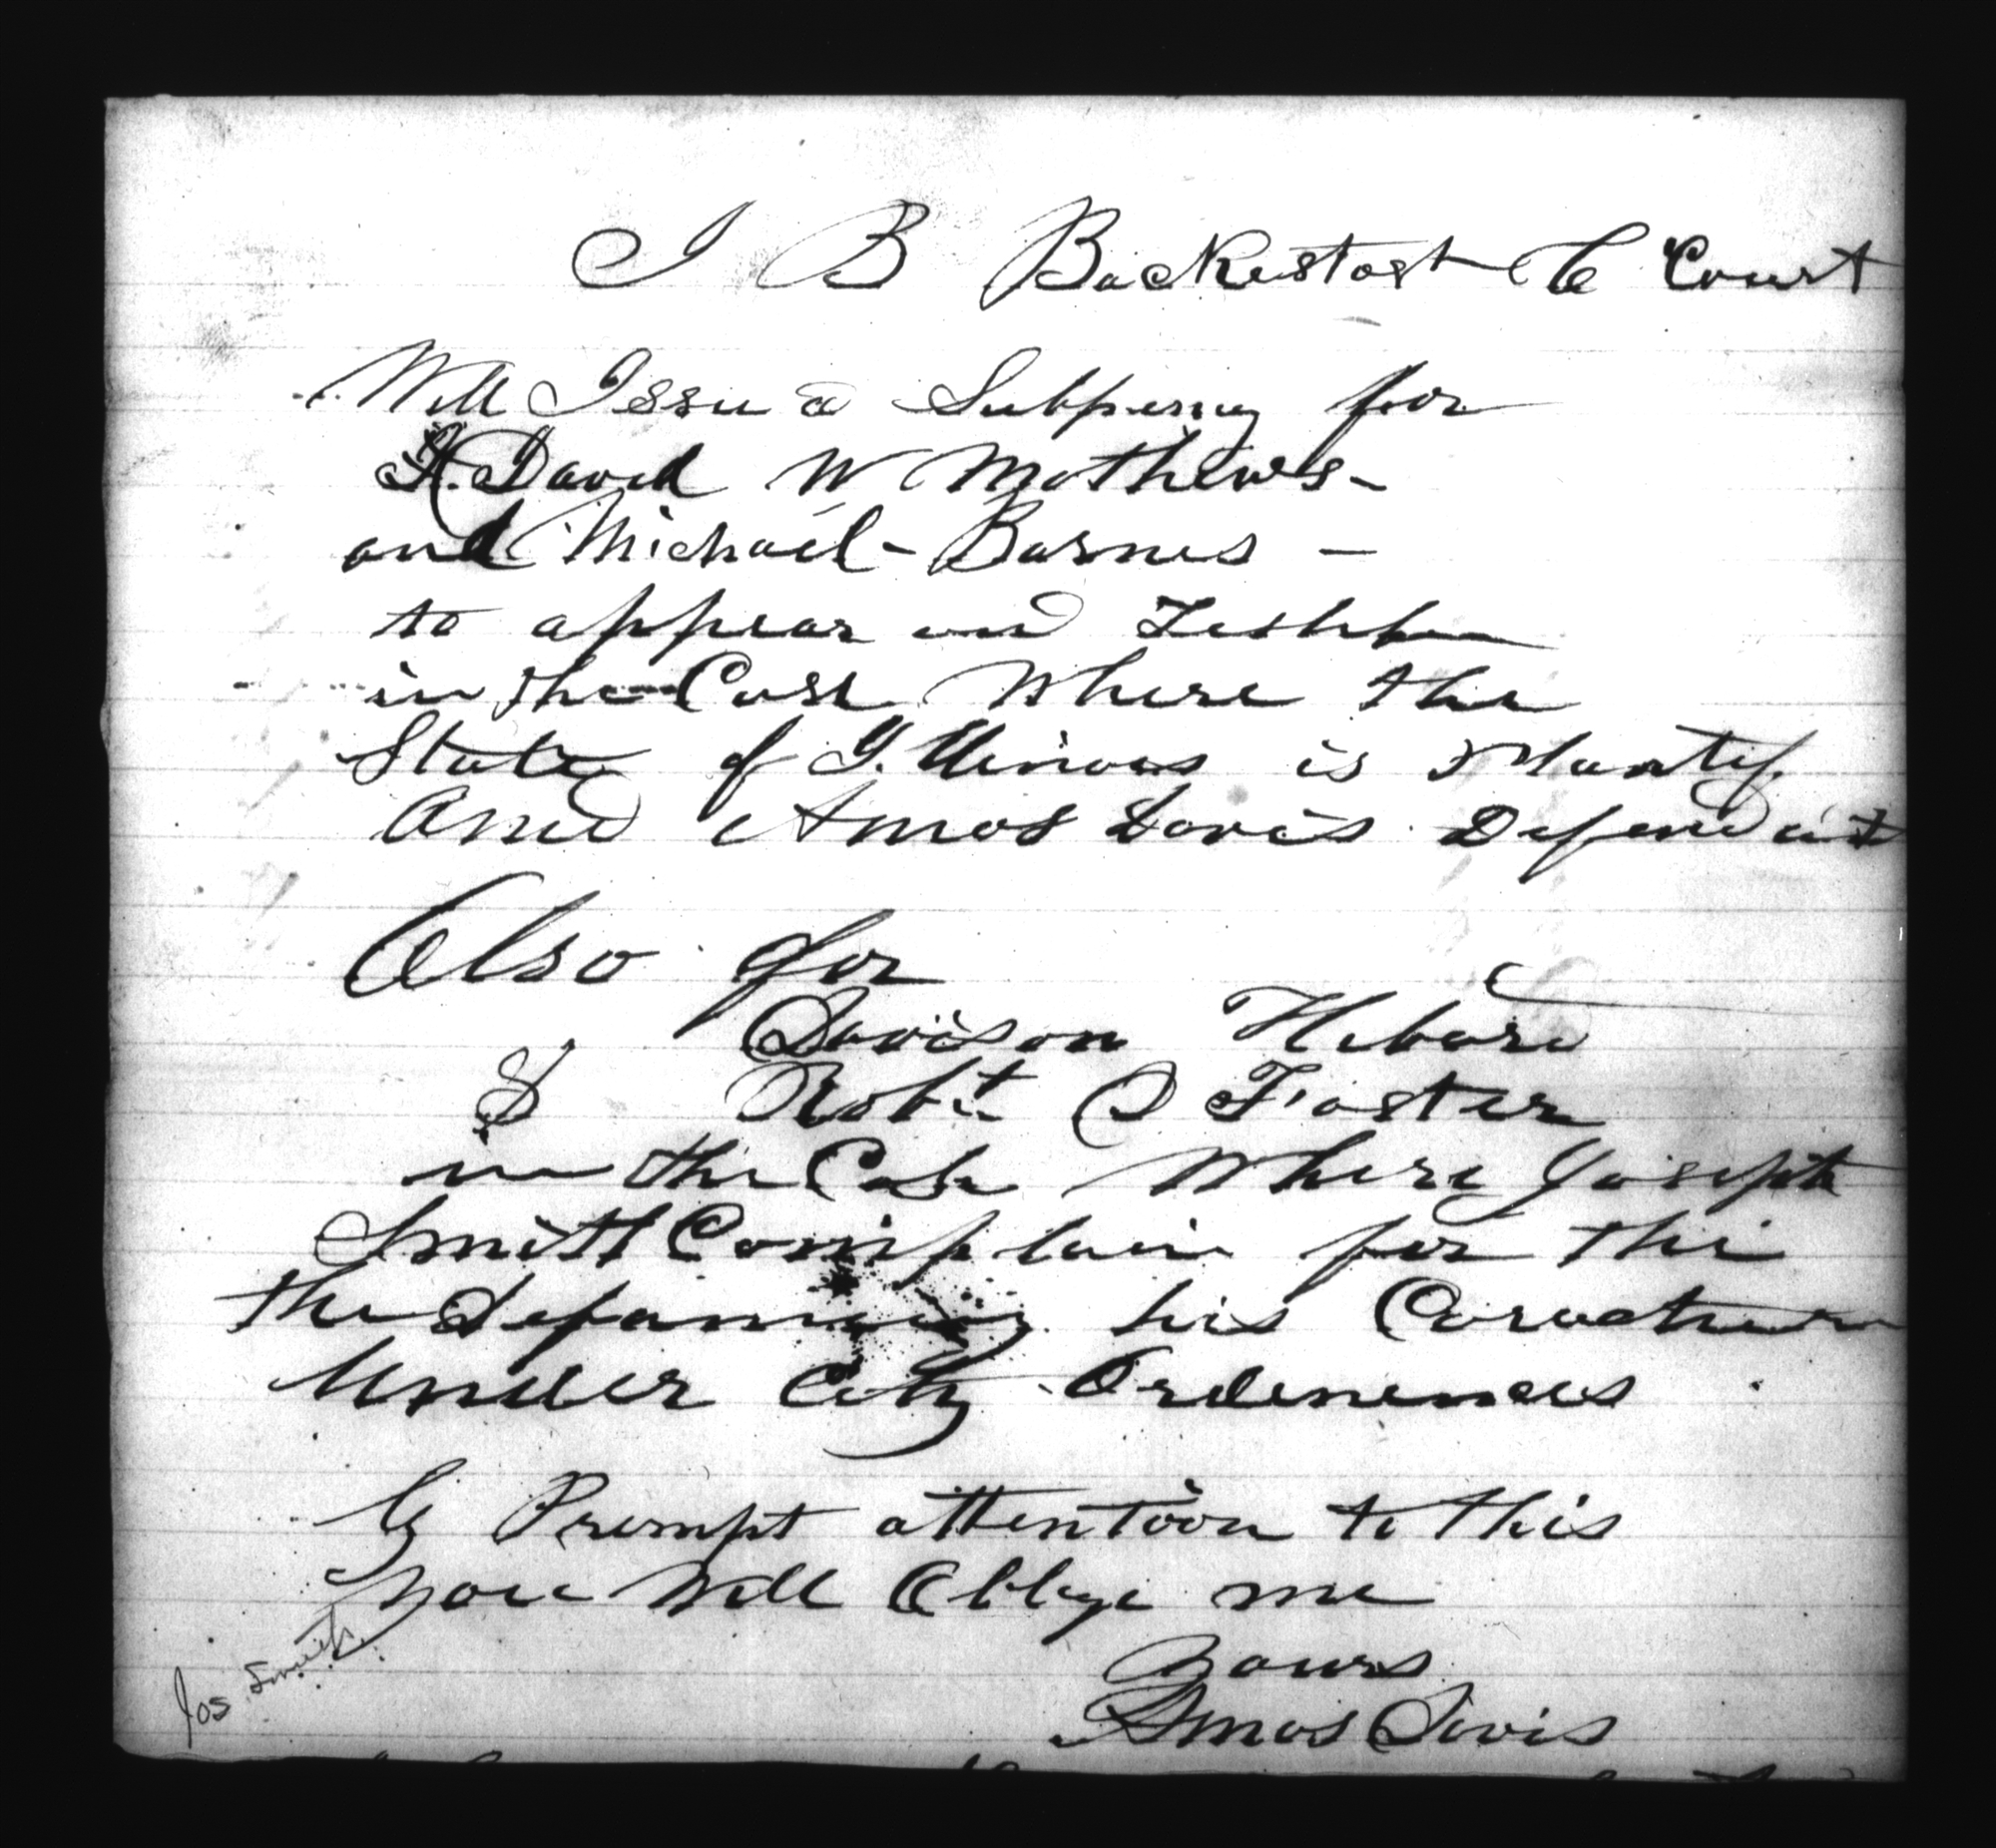 J B Backestost C Court
Will Issu a Subpeny for
David W Mathews -
and Michael - Barnes -
to appear and
in the Case Where the
State of Illinois is Plantif
And Amos Davis Defendant
Also for
Davison Hebard
& Robt D Foster
in the Case Where Joseph
Smith Complain for the
the defameing his
Under City Ordenences
By Prompt attention to this
you Will Oblige me
Yours
Amos Davis
Jos Smith